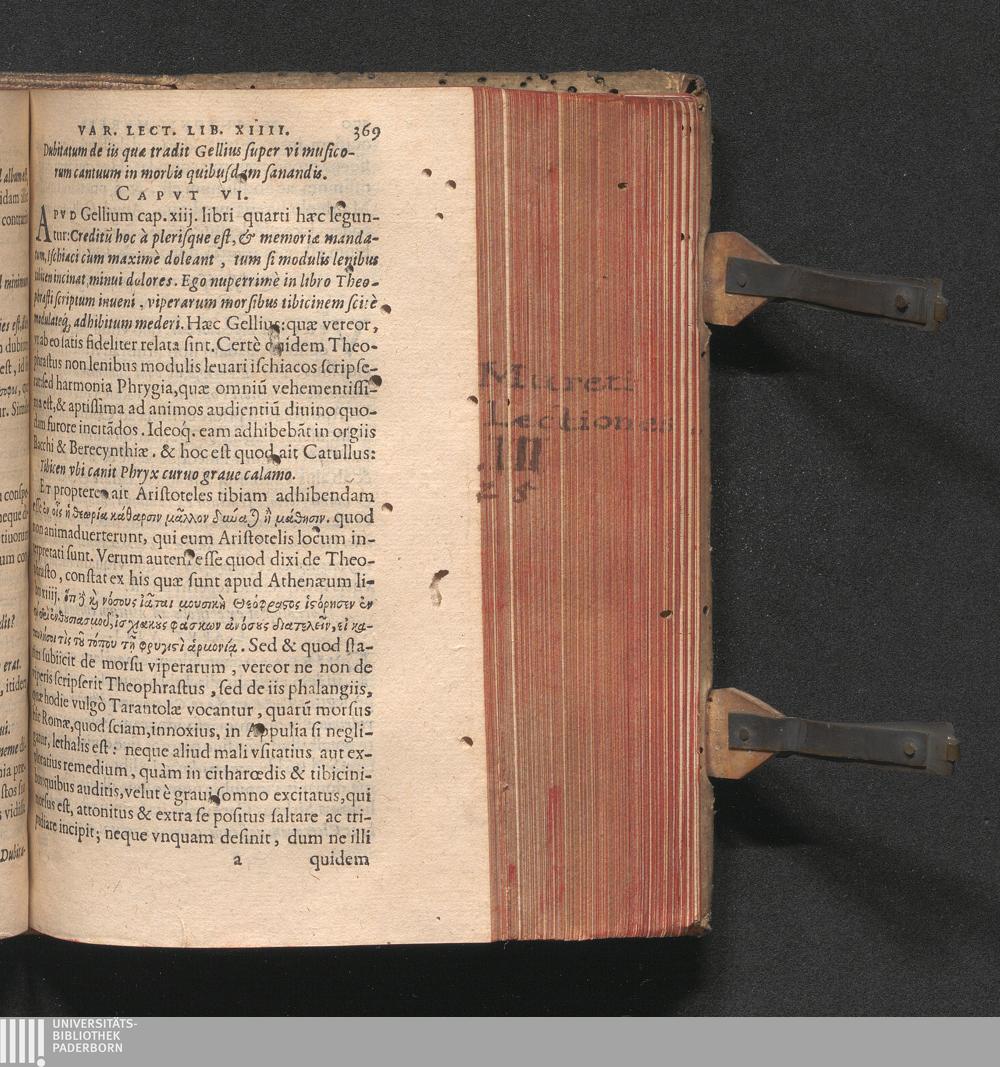 VAR. LECT. LIB. XIIII. 369
Dubitatum de iis quæ tradit Gellius ſuper vi muſico-
rum cantuum in morbis quibuſdam ſanandis.
CAPVT VI.
APVD Gellium cap. xiij. libri quarti hæc legun-
tur: Creditũ hoc à pleriſque eſt, & memoriæ manda-
tum, Iſchiaci cùm maximè doleant, tum ſi modulis lenibus
tibicen incinat, minui dolores. Ego nuperrimè in libro Theo-
phraſti ſcriptum inueni, viperarum morſibus tibicinem ſcitè
modulateq́, adhibitum mederi. Hæc Gellius: quæ vereor,
vt ab eo ſatis fideliter relata ſint. Certè quidem Theo-
phraſtus non lenibus modulis leuari iſchiacos ſcripſe-
rat: ſed harmonia Phrygia, quæ omniũ vehementiſſi-
ma eſt, & aptiſſima ad animos audientiũ diuino quo-
dam furore incitãdos. Ideoq́. eam adhibebãt in orgiis
Bacchi & Berecynthiæ. & hoc eſt quod ait Catullus:
Tibicen vbi canit Phryx curuo graue calamo.
Et propterea ait Ariſtoteles tibiam adhibendam
eſſe ἐν οἷς ἡ θεωρία κάθαρσιν μᾶλλον δύναται ἢ μάθησιν. quod
non animaduerterunt, qui eum Ariſtotelis locum in-
terpretati ſunt. Verum autem eſſe quod dixi de Theo-
phraſto, conſtat ex his quæ ſunt apud Athenæum li-
bro xiiij. ὅτι δὲ καὶ νόσους ἰᾶται μουσικὴ Θεόφραστος ἱστόρησεν ἐν
τῷ περὶ ἐνθουσιασμοῦ, ἰσχιακοὺς φάσκων ἀνόσους διατελεῖν, εἰ κα-
ταυλήσει τὶς τοῦ τόπου τῇ φρυγιστὶ ἁρμονίᾳ. Sed & quod ſta-
tim ſubiicit de morſu viperarum, vereor ne non de
viperis ſcripſerit Theophraſtus, ſed de iis phalangiis,
quæ hodie vulgò Tarantolæ vocantur, quarũ morſus
hîc Romæ, quod ſciam, innoxius, in Appulia ſi negli-
gatur, lethalis eſt: neque aliud mali vſitatius aut ex-
ploratius remedium, quàm in citharœdis & tibicini-
bus: quibus auditis, velut è graui ſomno excitatus, qui
morſus eſt, attonitus & extra ſe poſitus ſaltare ac tri-
pudiare incipit; neque vnquam deſinit, dum ne illi
a quidem
Mureti
Lectiones
.III
25
UNIVERSITÄTS-
BIBLIOTHEK
PADERBORN